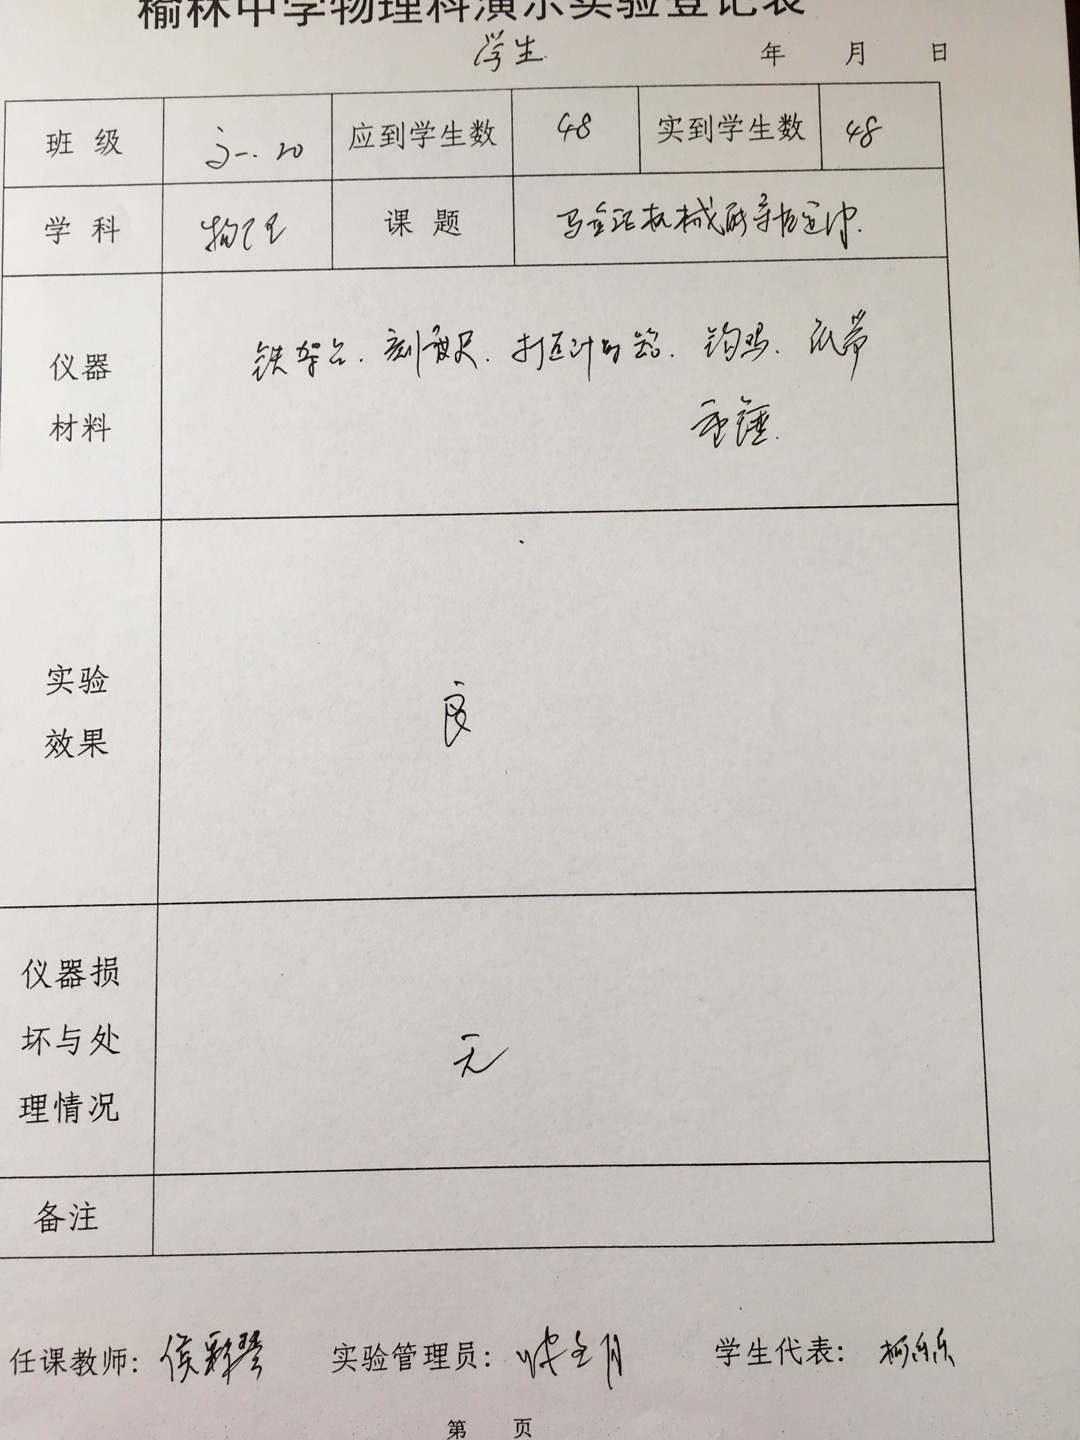 榆林中学物理科演示实验登记表
学生
年 月 日
班级 高一.20 应到学生数 48 实到学生数 48
学科 物理 课题 验证机械能守恒定律.
仪器材料 铁架台.刻度尺.打点计时器.钩码.纸带
重锤.
实验效果 良
仪器损坏与处理情况 无
备注
任课教师: 侯彩琴 实验管理员: 学生代表: 柯乐乐
第 页